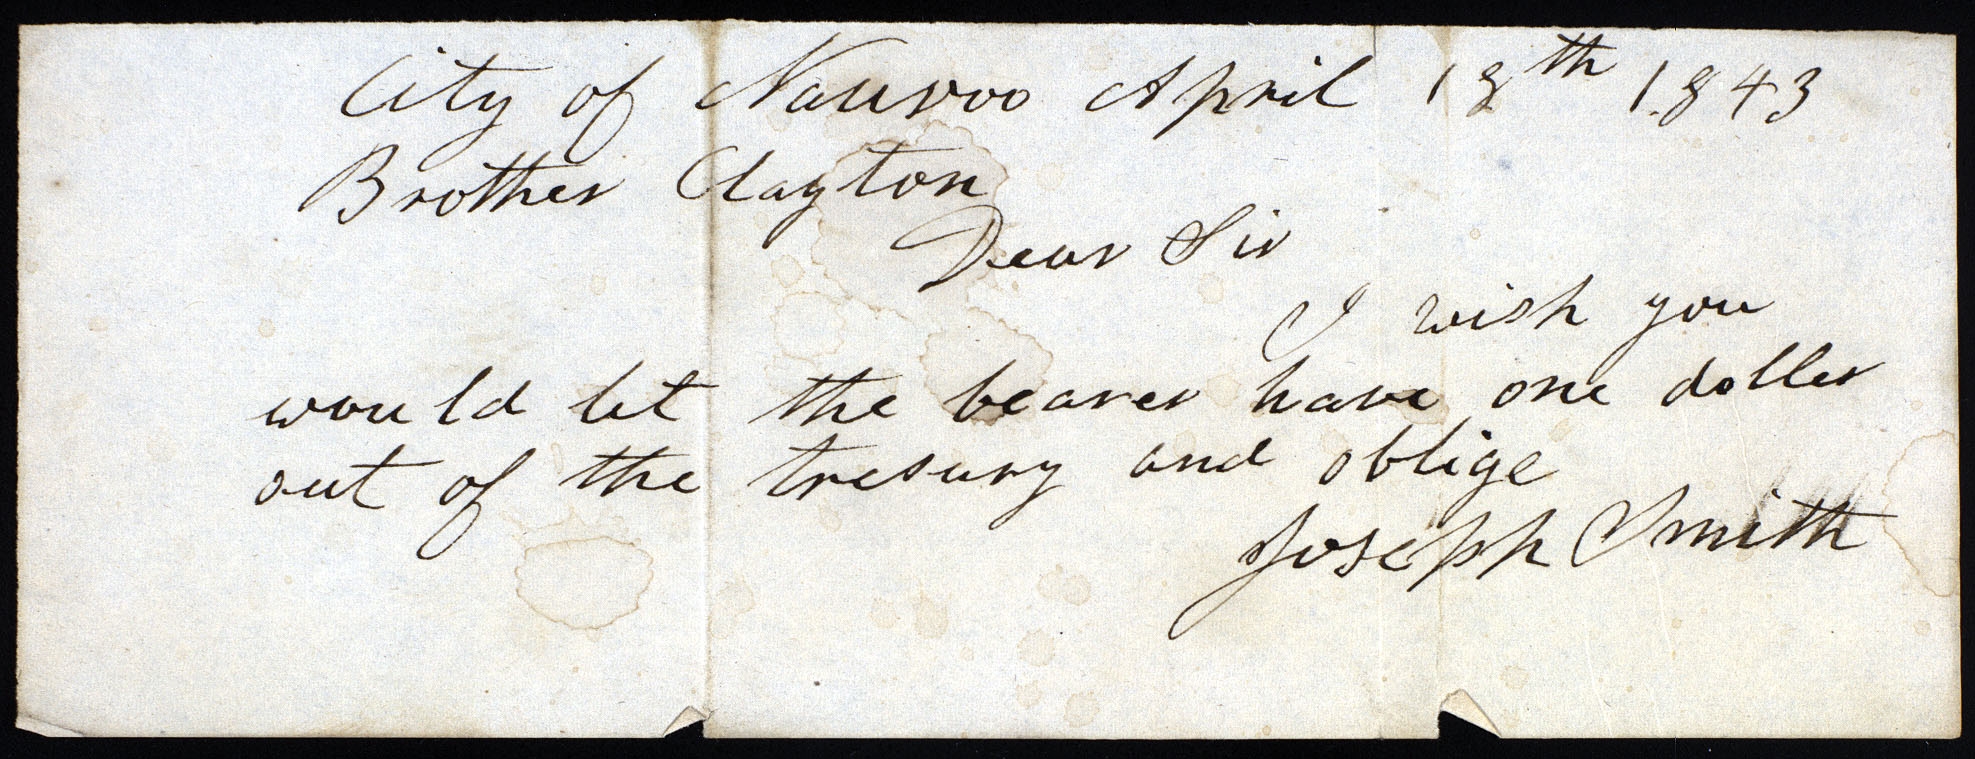 City of Nauvoo April 18th 1843
Brother Clayton
Dear Sir
I wish you
would let the bearer have one doller
out of the tresury and oblige
Joseph Smith